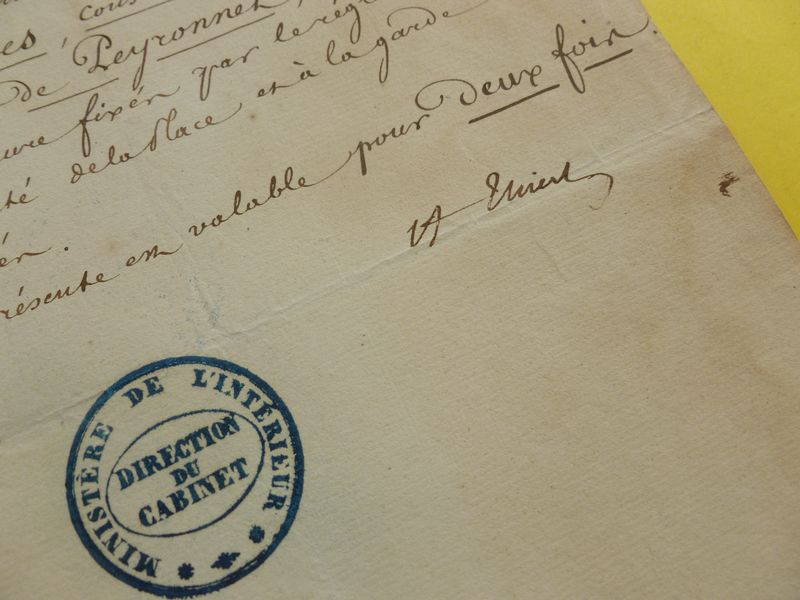 es, cous
de Peyronnet,
ure fixén par le régl
té de la Place et à la garde
én.
résente est valable pour deux fois.
A Thiers
MINISTÈRE DE L'INTÉRIEUR
DIRECTION
DU
CABINET